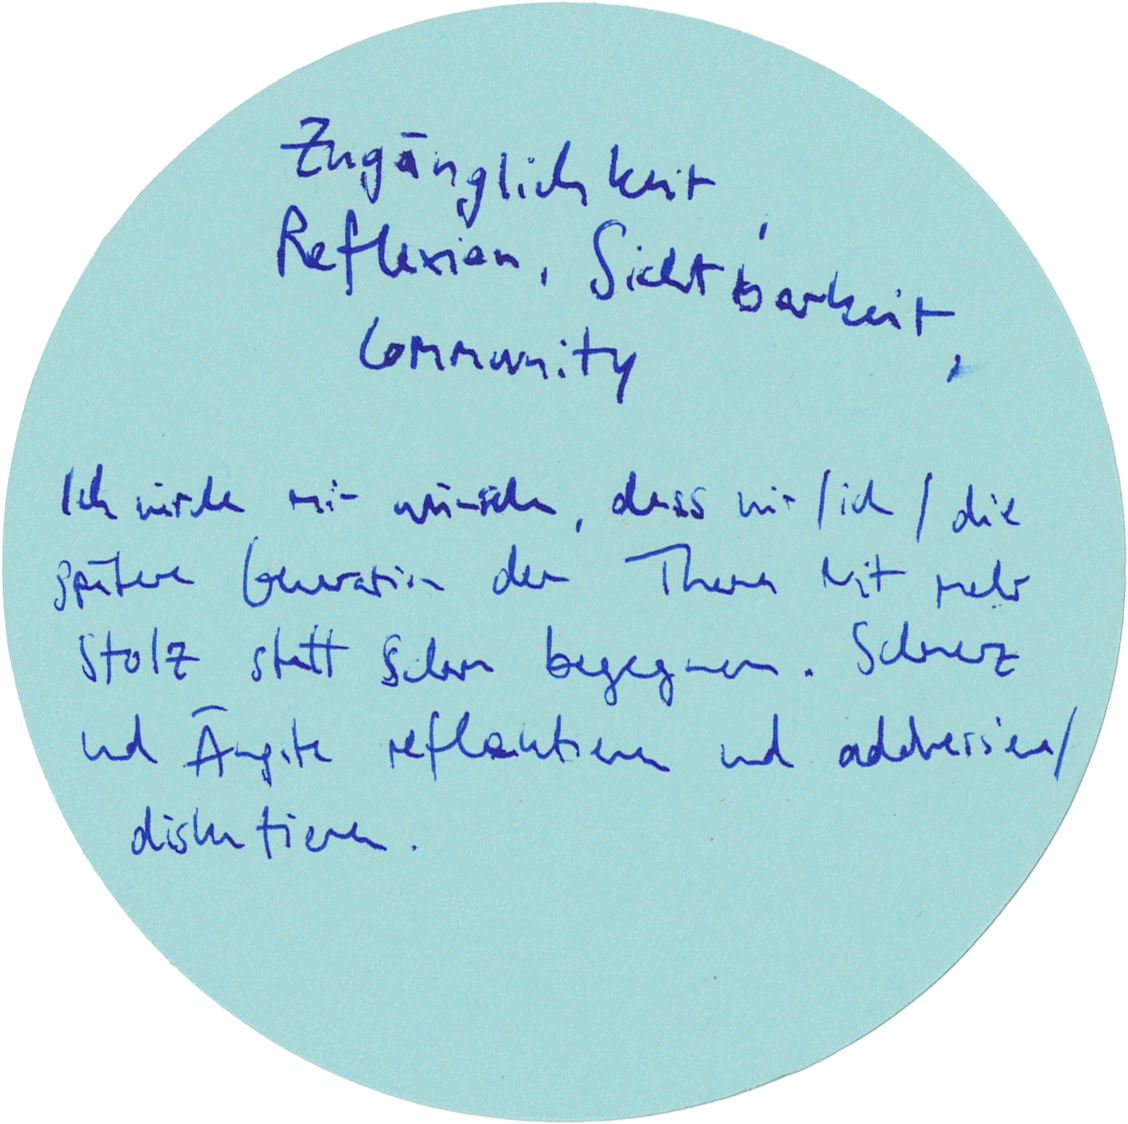 Zugänglichkeit,
Reflexion, Sichtbarkeit,
Community
Ich würde mir wünschen, dass wir/ich/die
spätere Generation den Thema mit mehr
Stolz statt Scham begegnen. Schmerz
und Ängste reflektieren und addressieren/
diskutieren.